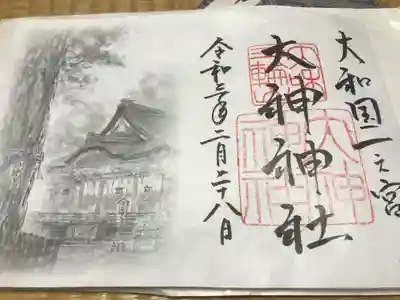 大和国一之宮
大神神社
令和二年二月二十八日